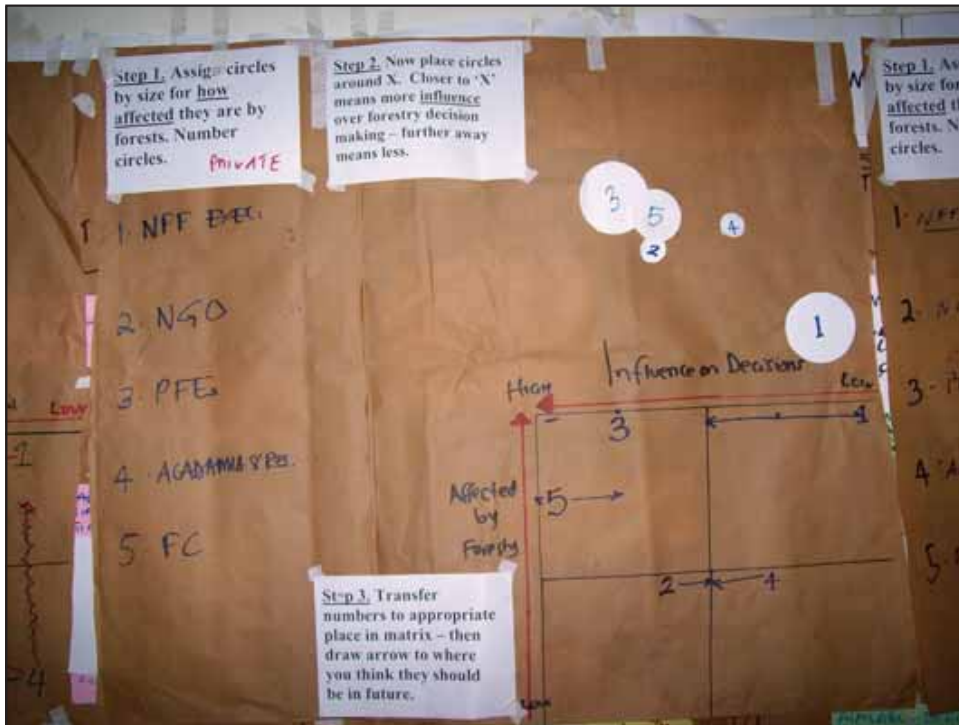 Step 1. Assign circles
by size for how
affected they are by
forests. Number
circles.
PRIVATE
Step 2. Now place circles
around X. Closer to 'X'
means more influence
over forestry decision
making – further away
means less.
Step 1. As
by size for
affected th
forests. N
circles.
1. NFF EXEC.
2. NGO
3. PFEs
4. ACADAMIA &
5 FC
3
5
2
4
1
Influence on Decisions
HIGH
Low
3
1
Affected
by
Foresty
5
2
4
Low
Step 3. Transfer
numbers to appropriate
place in matrix – then
draw arrow to where
you think they should
be in future.
Low
1
4
1. NFF
2. N
3.
4 A
5.